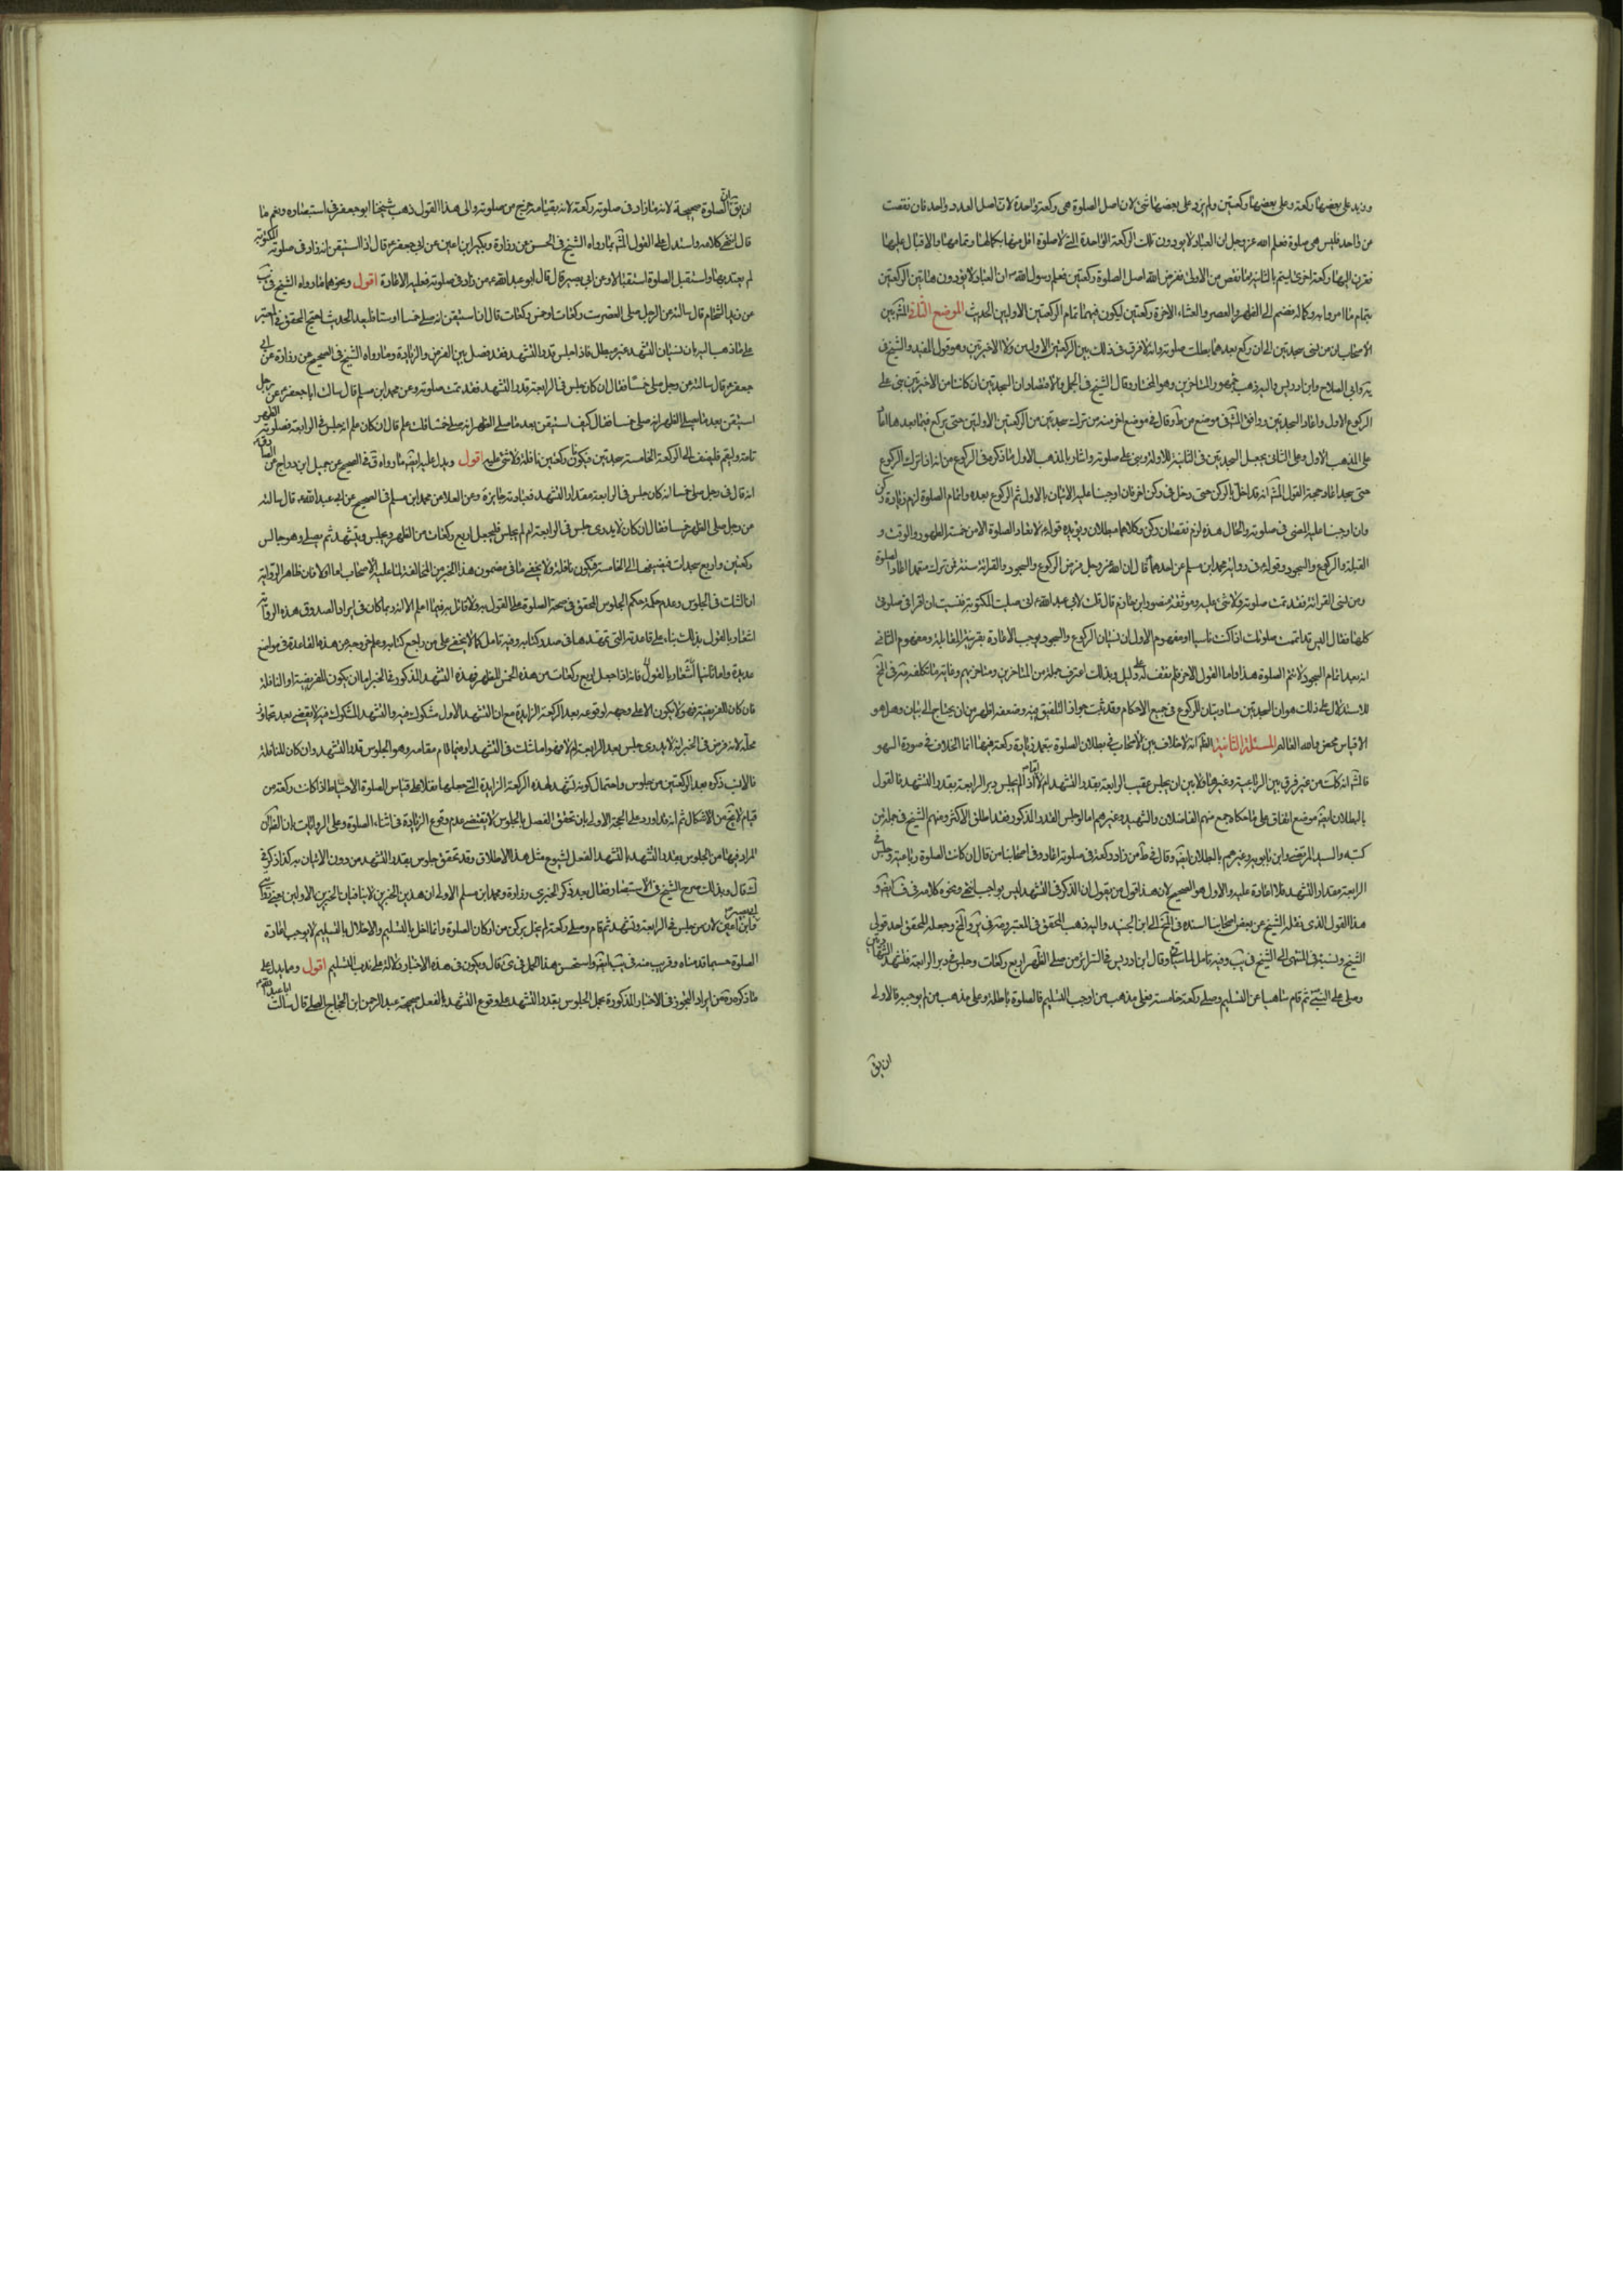 وزيد على بعضها ركعة وعلى بعضها ركعتين ولم يزد على بعضها شئ لان اصل الصلوة هى ركعة واحدة لان اصل العدد واحد فان نقصت
من واحد فليس هى صلوة فعلم الله عزوجل ان العباد لا يؤدون تلك الركعة الواحدة التى لا صلوة اقل منها بكمالها وتمامها والاقبال عليها
فقرن اليها ركعة اخرى ليتم بالثانية ما نقص من الاولى ففرض الله اصل الصلوة ركعتين فعلم رسول الله ان العباد لا يؤدون هاتين الركعتين
بتمام ما امروا به وكماله فضم الى الظهر والعصر والعشاء الاخرة ركعتين ليكون فيهما تمام الركعتين الاوليين الحديث الموضع الثانى المشه بين
الاصحاب ان من نسى سجدتين الى ان ركع بعدهما بطلت صلوته وانه لا فرق فى ذلك بين الركعتين الاوليين ولا الاخيرتين وهو قول المفيد والشيخ فى
ية وابى الصلاح وابن ادريس واليه ذهب جمهور المتاخرين وهو المختار وقال الشيخ فى الجمل والاقتصاد ان السجدتين ان كانتا من الاخيرتين بنى على
الركوع الاول واعاد السجدتين ووافق المشه فى موضع من ط وقال فى موضع اخر منه من ترك سجدتين من الركعتين الاوليين حتى يركع فيما بعدها اعاد
على المذهب الاول وعلى الثانى يجعل السجدتين فى الثانية للاولة وبنى على صلوته واشار بالمذهب الاول ما ذكره فى الركوع من انه اذا ترك الركوع
حتى سجد اعاد حجة القول المشه انه قد اخل بالركن حتى دخل فى ركن اخر فان اوجبنا عليه الاتيان بالاول ثم الركوع بعده واتمام الصلوة لزم زيادة ركن
وان اوجبنا عليه المضى فى صلوته والحال هذه لزم نقصان ركن وكلاهما مبطلان ويؤيده قوله لا تعاد الصلوة الا من خمسة الطهور والوقت و
القبلة والركوع والسجود وقوله فى رواية محمد ابن مسلم عن احدهما قال ان الله عزوجل فرض الركوع والسجود والقرائة سنة فمن ترك متعمدا اعاد الصلوة
ومن نسى القرائة فقد تمت صلوته ولا شئ عليه وموثقة منصور ابن حازم قال قلت لابى عبد الله انى صليت المكتوبة فنسيت ان اقرا فى صلوتى
كلها فقال اليس قد اتممت صلوتك اذا كنت ناسيا او مفهوم الاول ان نسيان الركوع والسجود يوجب الاعادة بقرينة المقابلة ومفهوم الثانى
انه بعد اتمام السجود لا يتم الصلوة هذا واما القول الاخر فلم نقف له على دليل وبذلك اعترف جملة من المتاخرين ومتاخريهم وغاية ما تكلفه فى الخ
للاستدلال على ذلك هو ان السجدتين مساويتان للركوع فى جميع الاحكام وقد ثبت جواز التلفيق فيه وضعفه اظهر من ان يحتاج الى بيان وهل هو
الا قياس محض والله العالم المسئلة الثانية الظ انه لا خلاف بين الاصحاب فى بطلان الصلوة بتعمد زيادة ركعة فيها انما الخلاف فى صورة السهو
فالمشه انه كذلك من غير فرق بين الرباعية وغيرها ولا بين ان يجلس عقيب الرابعة بقدر التشهد ام لا اما اذا لم يجلس دبر الرابعة بقدر التشهد فالقول
بالبطلان موضع اتفاق على ما حكاه جمع منهم الفاضلان والشهيد وغيرهم اما لو جلس القدر المذكور فقد اطلق الاكثر ومنهم الشيخ فى جملة من
كتبه والسيد المرتضى وابن بابويه وغيرهم بالبطلان ايضا وقال فى ط من زاد ركعة فى صلوته اعاد وفى اصحابنا من قال ان كانت الصلوة رباعية وجلس فى
الرابعة مقدار التشهد فلا اعادة عليه والاول هو الصحيح لان هذا قول من يقول ان الذكر فى التشهد ليس بواجب انتهى ونحوه كلامه فى ف ايضا و
هذا القول الذى نقله الشيخ عن بعض اصحابنا اسنده فى الخ الى ابن الجنيد واليه ذهب المحقق فى المعتبر والخ وجعله المحقق احد قولى
الشيخ ونسبه فى المنتهى الى الشيخ فى يب وفيه تامل لما سياتى وقال ابن ادريس فى السرائر من صلى الظهر اربع ركعات وجلس فى دبر الرابعة فتشهد الشهادتين
وصلى على النبى ثم قام ساهيا عن التسليم وصلى ركعة خامسة فعلى مذهب من اوجب التسليم فالصلوة باطلة وعلى مذهب من لم يوجبه فالاولى
ان يق
ان يق بان الصلوة صحيحة لانه ما زاد فى صلوته ركعة لانه بقيامه خرج من صلوته والى هذا القول ذهب شيخنا ابو جعفر فى استبصاره ونعم ما
قال انتهى كلامه واستدل على القول المشه بما رواه الشيخ فى الحسن عن زرارة وبكير ابن اعين عن ابى جعفر قال اذا استيقن انه زاد فى صلوته المكتوبة
لم يعتد بها واستقبل الصلوة استقبالا وعن ابى بصير قال قال ابو عبد الله من زاد فى صلوته فعليه الاعادة اقول ونحوهما ما رواه الشيخ فى يب
عن زيد الشحام قال سالته عن الرجل صلى العصر ست ركعات او خمس ركعات قال ان استيقن انه صلى خمسا او ستا فليعد الحديث احتج المحقق فى المعتبر
على ما ذهب اليه بان نسيان التشهد غير مبطل فاذا جلس قدر التشهد فقد فصل بين الفرض والزيادة وما رواه الشيخ فى الصحيح عن زرارة عن ابى
جعفر قال سالته عن رجل صلى خمسا فقال ان كان جلس فى الرابعة قدر التشهد فقد تمت صلوته وعن محمد ابن مسلم قال سالت ابا جعفر عن رجل
استيقن بعد ما صلى الظهر انه صلى خمسا فقال كيف استيقن بعد ما صلى الظهر انه صلى خمسا قلت علم قال ان كان علم انه جلس فى الرابعة فصلوته الظهر
تامة وليقم فليضف الى الركعة الخامسة سجدتين فيكونان ركعتين نافلة ولا شئ عليه اقول ويدل عليه ايضا ما رواه ق فى الصحيح عن جميل ابن دراج عن الصادق
انه قال فى رجل صلى خمسا انه كان جلس فى الرابعة مقدار التشهد فعبادته جائزة وعن العلا عن محمد ابن مسلم فى الصحيح عن ابى عبد الله قال سالته
عن رجل صلى الظهر خمسا فقال ان كان لا يدرى جلس فى الرابعة ام لم يجلس فليجعل اربع ركعات من الظهر ويجلس ويتشهد ثم يصلى وهو جالس
ركعتين واربع سجدات فيضيفها الى الخامسة فيكون نافلة ولا يخفى ما فى مضمون هذا الخبر من المخالفة لما عليه الاصحاب اما اولا فان ظاهر الرواية
ان الشك فى الجلوس وعدمه حكمه حكم الجلوس المحقق فى صحة الصلوة على القول به ولا قائل به فيما اعلم الا انه ربما كان فى ايراد الصدوق هذه الرواية
اشعار بالقول بذلك بناء على قاعدته التى مهدها فى صدر كتابه وفيه تامل كما لا يخفى على من راجع كتابه وعلم خروجه عن هذه القاعدة فى مواضع
عديدة واما ثانيا فانه اذا جعل اربع ركعات من هذه الخمس للظهر فهذه التشهد المذكور فى الخبر اما ان يكون للفريضة او النافلة
فان كان للفريضة فهو لا يكون الا على وجهه لوقوعه بعد الركعة الزايدة مع ان التشهد الاول مشكوك فيه والتشهد المشكوك فيه لا يقضى بعد تجاوز
محله لانه فرض فى الخبر انه لا يدرى جلس بعد الرابعة ام لا فهو اما شك فى التشهد او فيما قام مقامه وهو الجلوس قدر التشهد وان كان للنافلة
فالانسب ذكره بعد الركعتين من جلوس واحتمال كونه تشهد لهذه الركعة الزايدة التى جعلها نفلا على قياس الصلوة الاحتياط اذا كانت ركعة من
قيام لا يخ من الاشكال ثم انه قد اورد على الحجة الاولى بان تحقق الفصل بالجلوس لا يقتضى عدم وقوع الزيادة فى اثناء الصلوة وعلى الروايات بان الظ ان
المراد فيها من الجلوس بقدر التشهد التشهد الفعل لشيوع مثل هذا الاطلاق وقد تحقق جلوس بقدر التشهد من دون الاتيان به كذا ذكره فى
ك قال وبذلك صرح الشيخ فى الاستبصار فقال بعد ذكر الخبرى زرارة ومحمد ابن مسلم الاولة ان هذين الخبرين لا ينافيان الخبرين الاولين يعنى خبرى
وابن اعين لان من جلس فى الرابعة وتشهد ثم قام وصلى ركعة لم يخل بركن من اركان الصلوة وانما اخل بالتسليم والاخلال بالتسليم لا يوجب اعادة
الصلوة حسبما قدمناه وقريب منه فى يب ايضا واستحسن هذا الحمل فى ى قال ويكون فى هذه الاخبار دلالة على ندب التسليم اقول ومما يدل على
ما ذكره من ايراد التجوز فى الاخبار المذكورة بحمل الجلوس بقدر التشهد على وقوع التشهد بالفعل صحيحة عبد الرحمن ابن الحجاج قال سالت ابا عبد الله